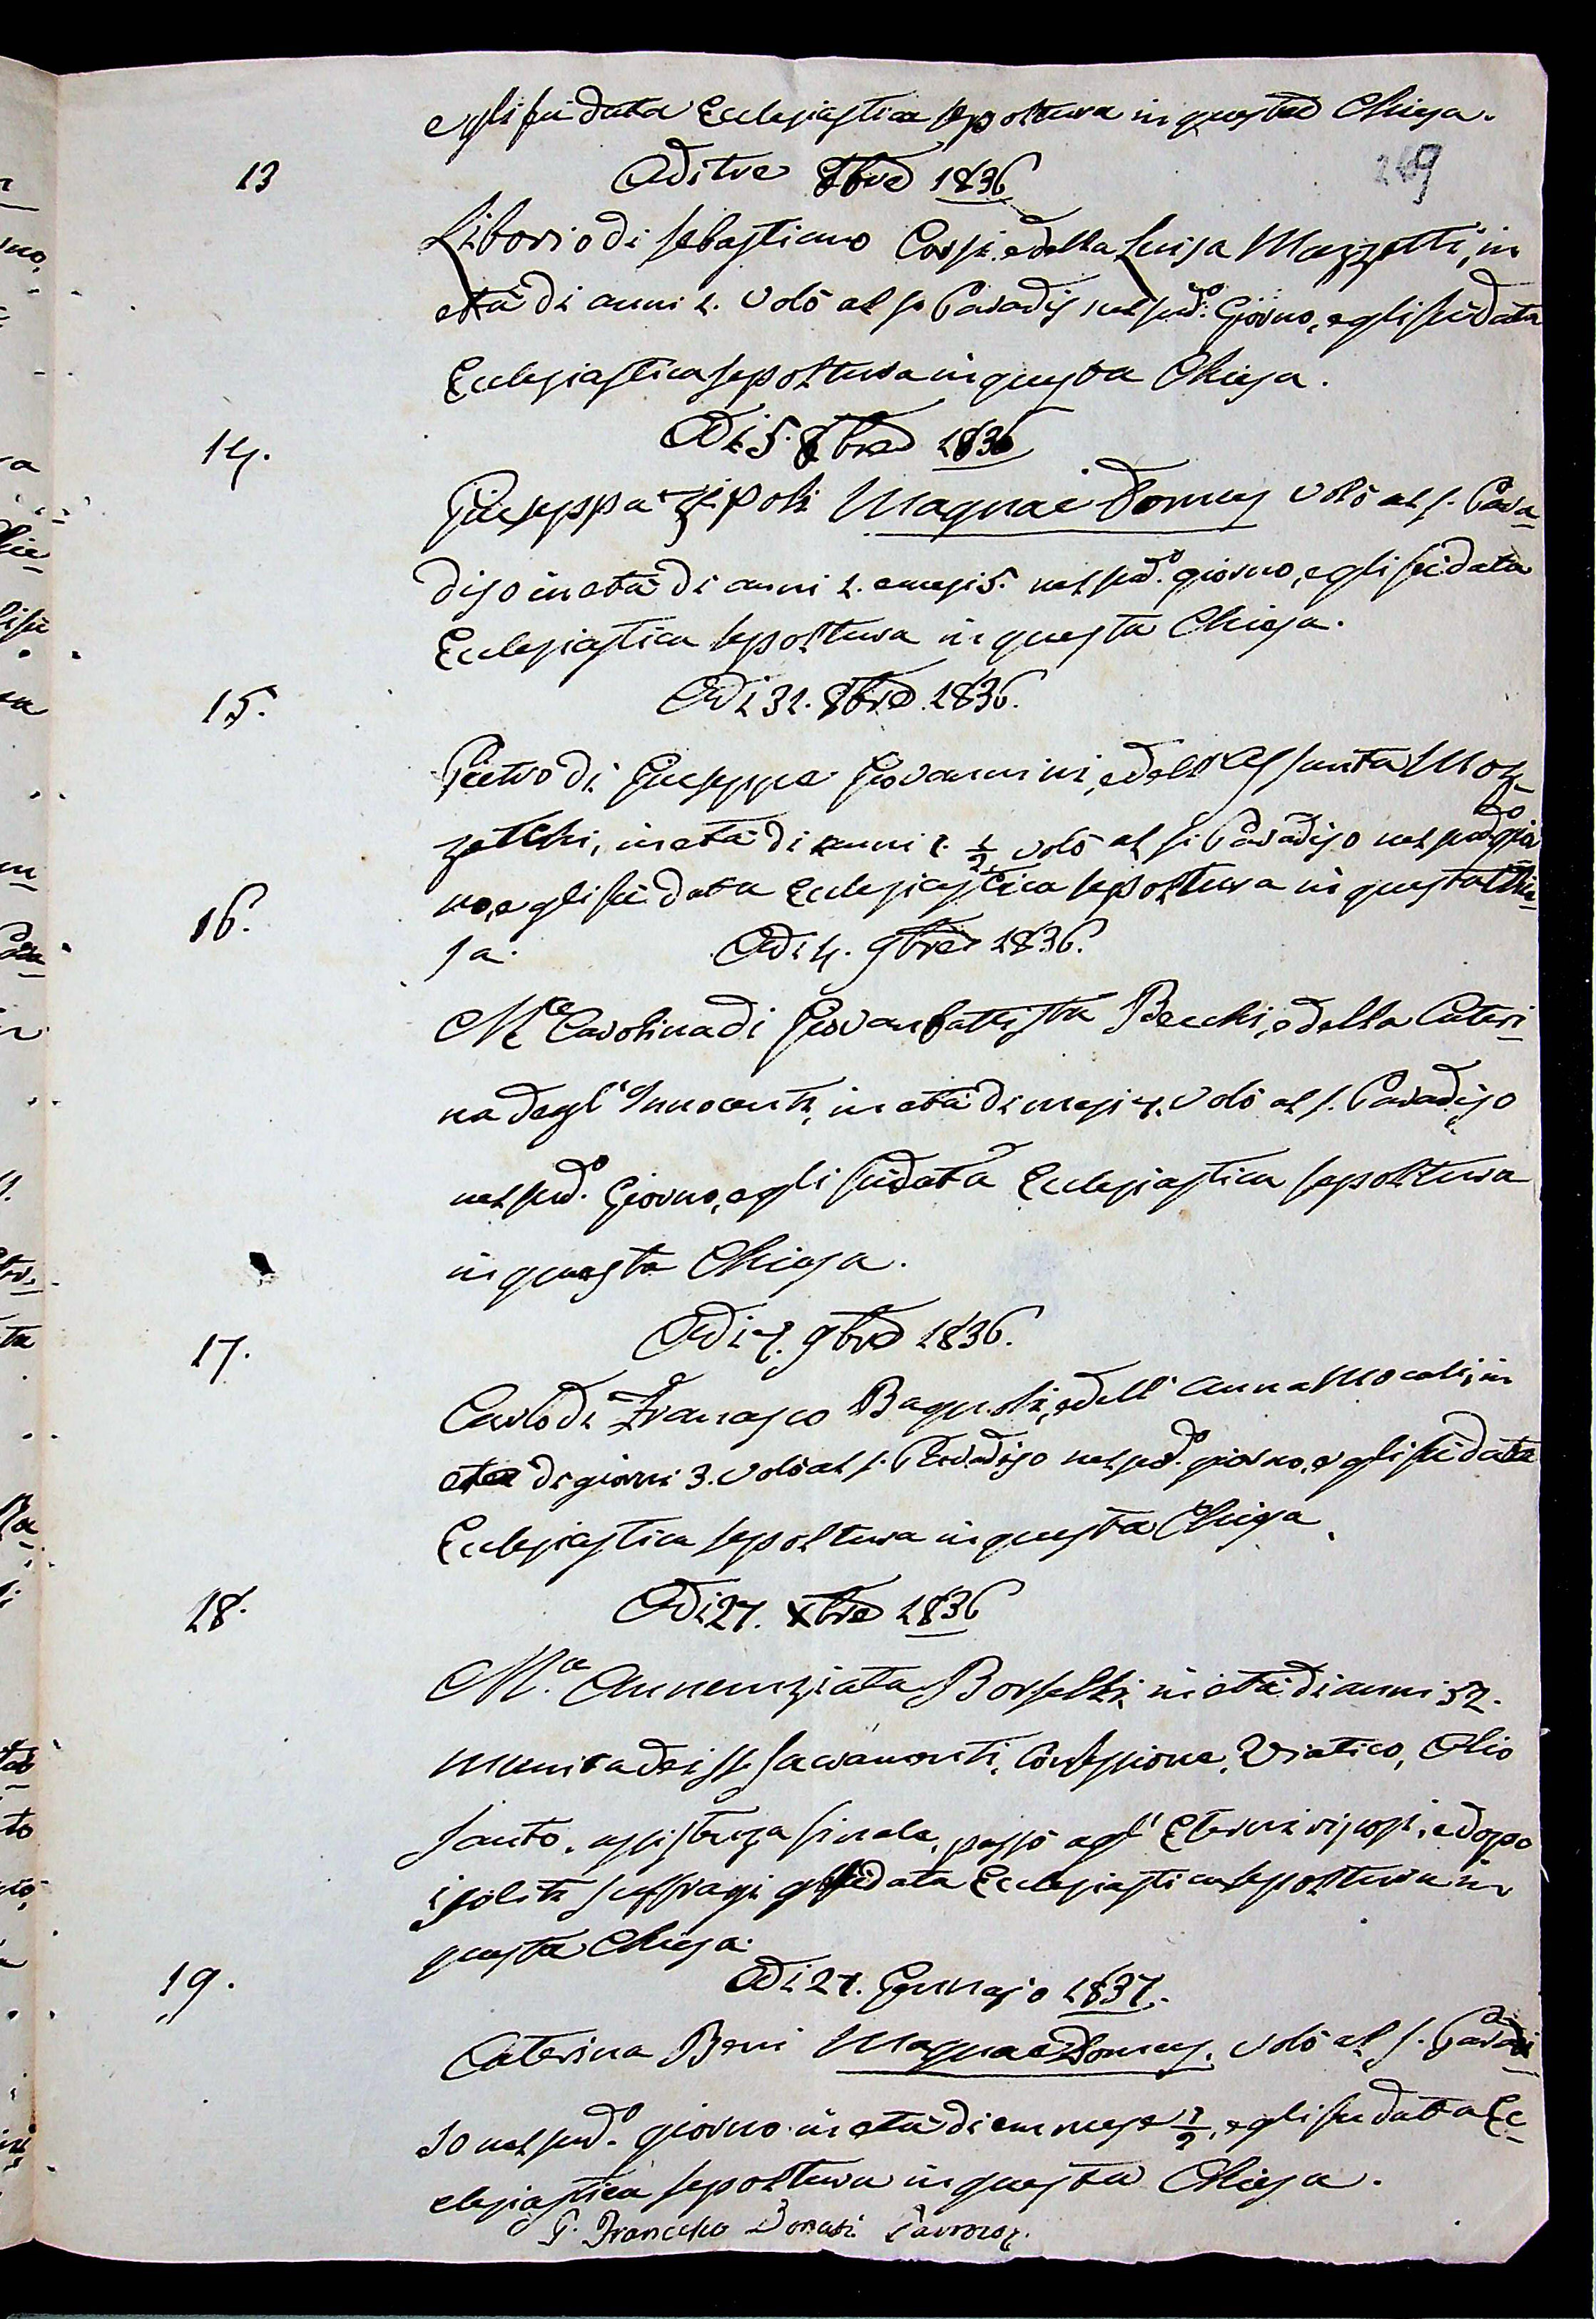 e gli fu data Ecclesiastica sepoltura in questa Chiesa.
269
13
Adi tre 8bre 1836
Liborio di Sebastiano Corsi, e della Luisa Mazzetti, in
età di anni 2. Volò al S. Paradis. nel sud.º Giorno, e gli fu data
Ecclesiastica sepoltura in questa Chiesa.
14.
Adi 5. 8bre 1836
Giuseppa Zipoli Magnae Domus volò al S. Para
diso in età di anni 2. e mesi 5. nel sud.º giorno, e gli fu data
Ecclesiastica sepoltura in questa Chiesa.
15.
Adi 31. 8bre 1836.
Pietro di Giuseppe Giovannini, e dell'Assunta Moz
zecchi, in età di anni 1. 1/2 volò al S. Paradiso nel sud.º gior
no, e gli fu data Ecclesiastica sepoltura in questa Chie
sa.
16.
Adi 4. 9bre 1836.
M.a Carolina di Giovanbattista Becchi, e della Cateri
na degl'Innocenti, in età di mesi 7. Volò al S. Paradiso
nel sud.º Giorno, e gli fu data Ecclesiastica sepoltura
in questa Chiesa.
17.
Adi 7. 9bre 1836.
Carlo di Francesco Bagnoli, e dell'Anna Mocali, in
età di giorni 3. Volò al S. Paradiso nel sud.º giorno, e gli fu data
Ecclesiastica sepoltura in questa Chiesa.
18.
Adi 27. Xbre 1836
M.a Annunziata Borselli, in età di anni 52.
munita dei SS. Sacramenti, Confessione, Viatico, Olio
Santo, assistenza finale, passò agl'Eterni riposi, e dopo
i soliti suffragi gli fu data Ecclesiastica sepoltura in
questa Chiesa.
19.
Adi 27. Gennajo 1837.
Caterina Beni Magnae Domus. volò al S. Paradi
so nel sud.º giorno in età di un mese 1/2, e gli fu data Ec
clesiastica sepoltura in questa Chiesa.
P. Francesco Donati Parroco.